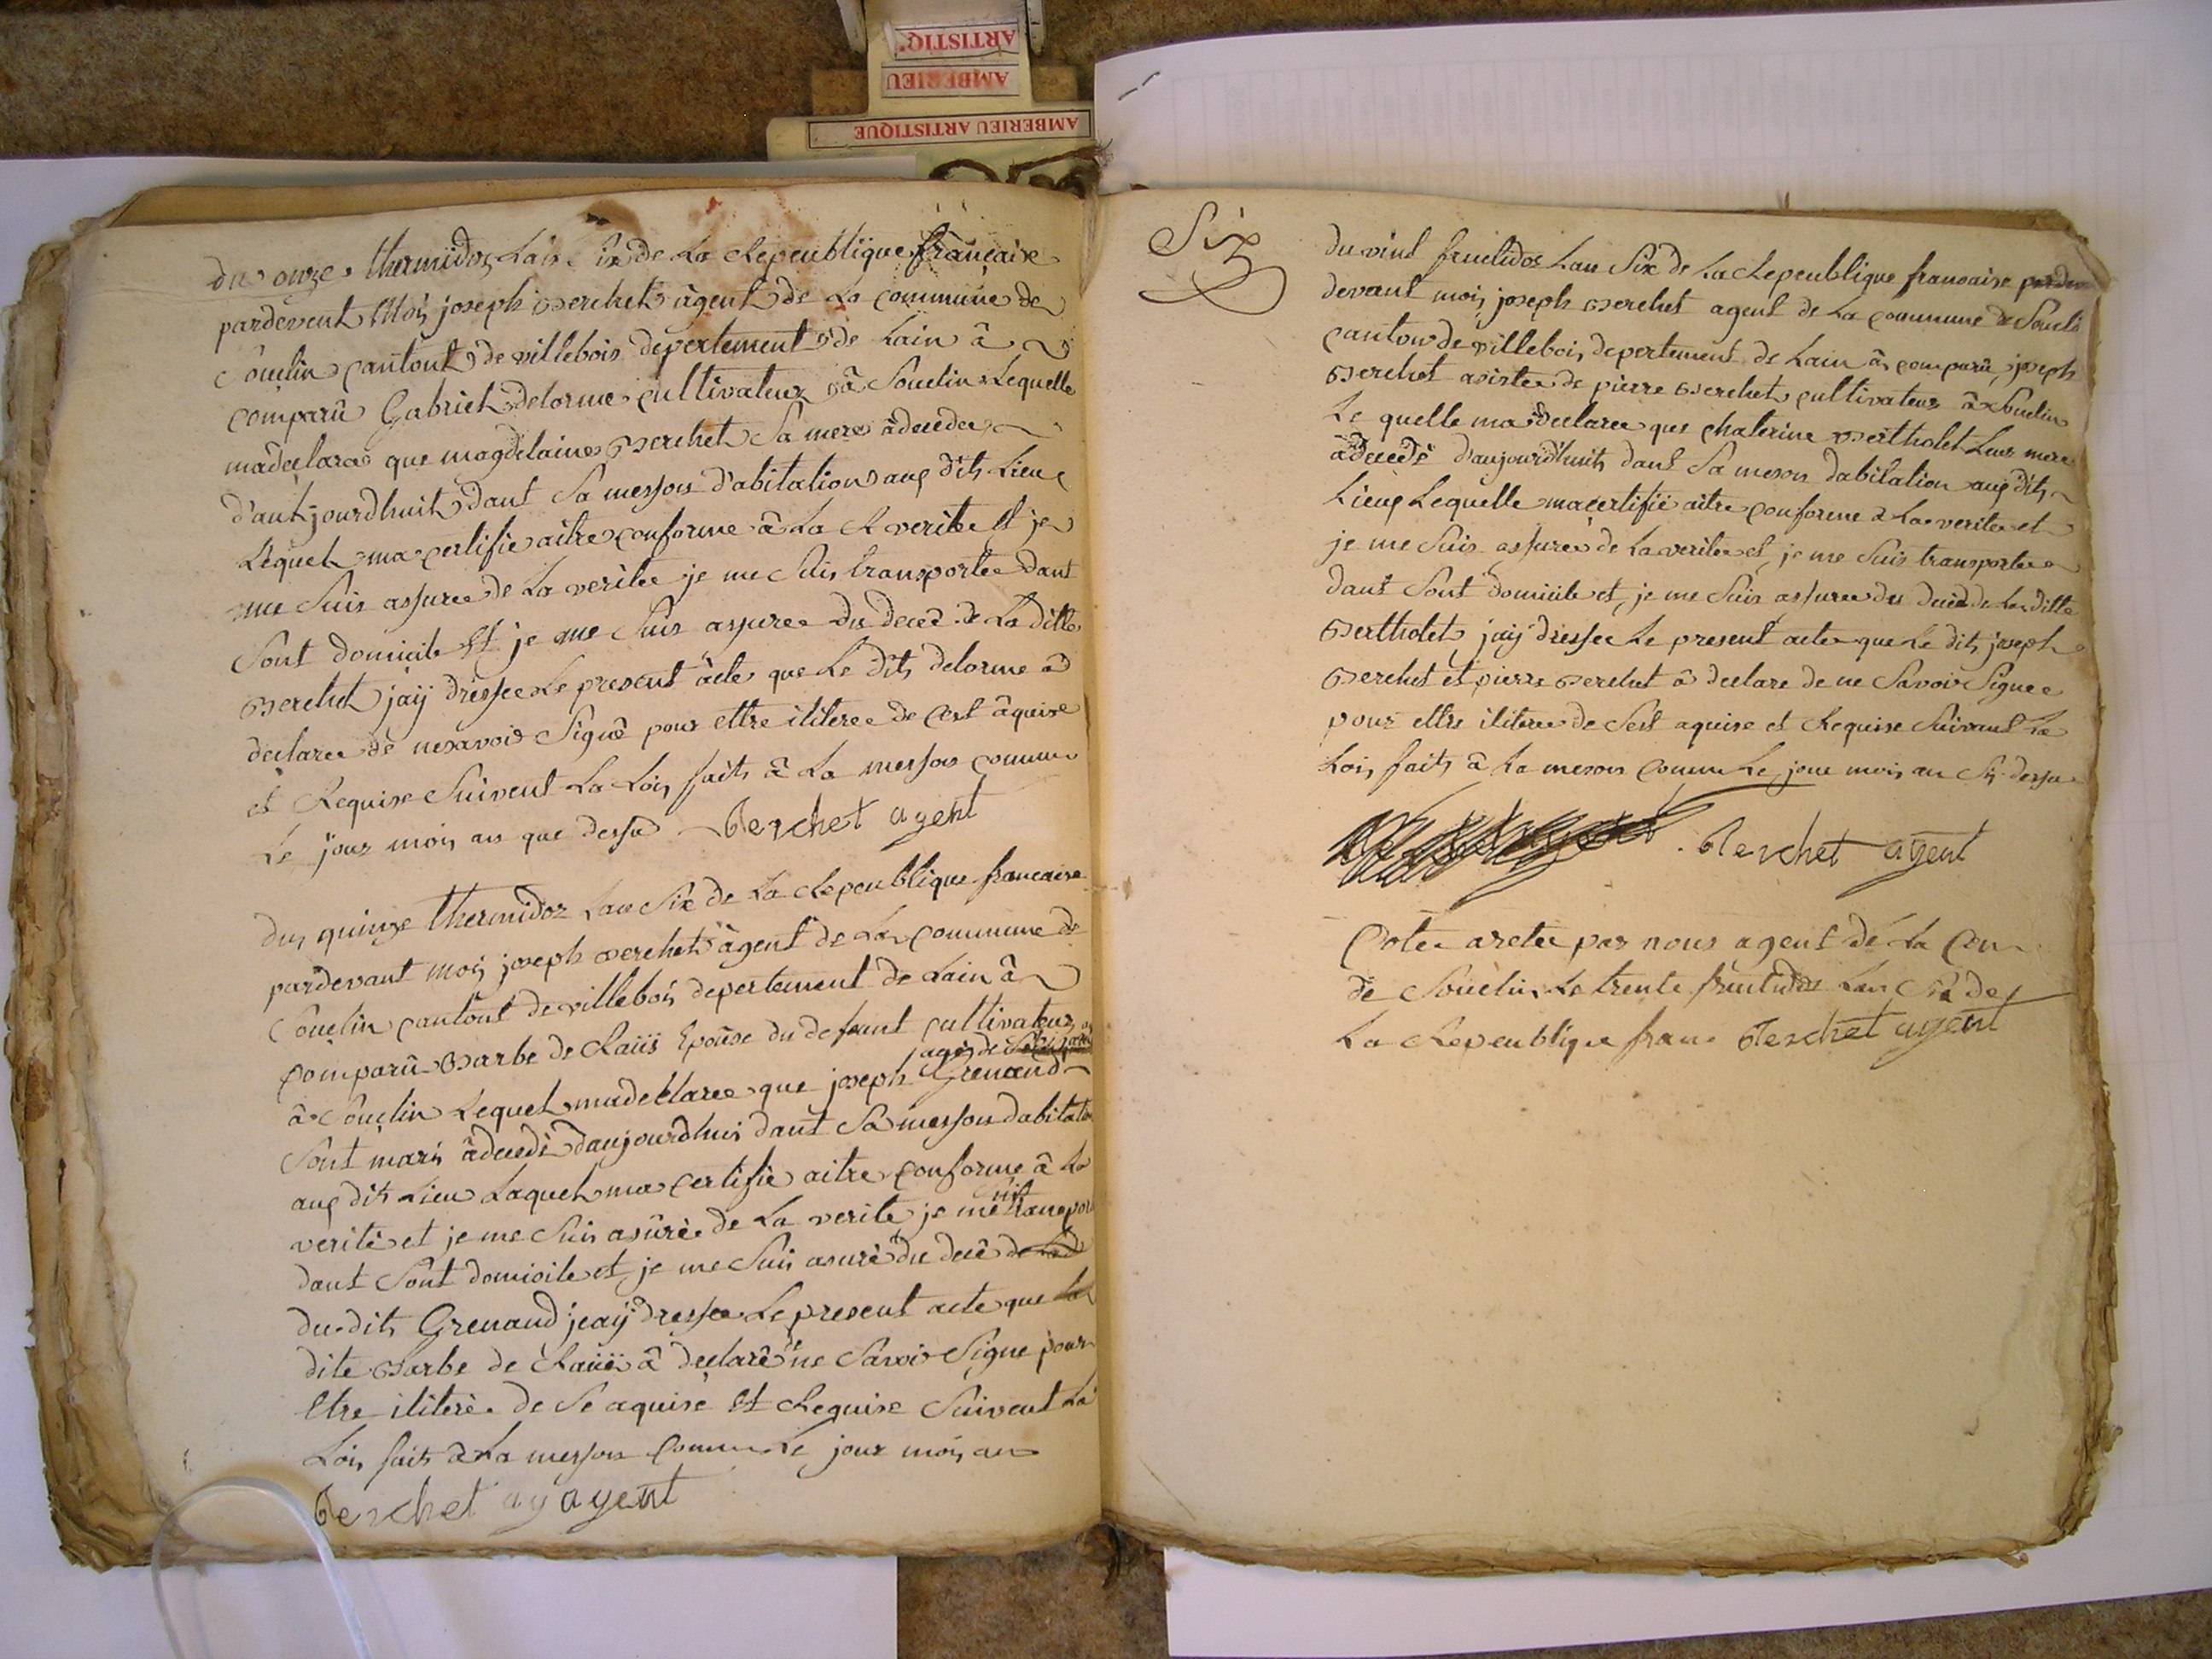 ARTISTIQ
AMBERIEU
AMBERIEU ARTISTIQUE
du onze thermidor Lan Six de La Republique francaise
pardevent Moi joseph Berchet agent de La commune de
Souclin cantont de villebois depertement de Lain â
comparû Gabriel delorme cultivateur â Souclin Lequelle
madeclaree que magdelaine Berchet Sa mere âdecedee
d'aut jourdhuit dant Sa messon d'abitation aux dits Lieux
Lequel ma certifie aitre conforme â La verite Et je
me Suis assuree de La veritee je me Suis transportee dant
Sont domicile Et je me Suis assuree du deced de La ditte
Berchet jaÿ dressee Le present acte que Le dits delorme â
declaree de nesavoir Signê pour ettre iliteree de Cest âquise
et Requise Suivent La Lois faits â La messon commune
Le jour mois an que dessu Berchet agent
du quinze thermidor Lan Six de La Republique francaise
pardevant moi joseph Berchet agent de La commune de
Souclin cantont de villebois depertement de Lain â
comparû Barbe de Raüs Epouse du defunt cultivateur
agés de
â Souclin Lequel madeklaree que joseph Grenand
Sont maris âdecedê daujourdhuis dant Sa messon dabitation
aux dits Lieu Laquel ma certifie aitre conforme â La
veritè et je me Suis asûrêe de La verite je me transpor
dant Sont domicile et je me Suis asurè du decê de La d
du dits Grenand jeaÿ dressee Le present acte que La
dite Barbe de Raüs â declarê ne Savoir Signe pour
Etre iliterè de Se aquisè Et Requise Suivent La
Lois faits â La messon Commune Le jour mois an
Berchet ag agent
Six
du vint fructidor Lan Six de La Republique francaise par
devant mois joseph Berchet agent de La commune de Soucli
canton de villebois depertement de Lain â comparû joseph
Berchet asistee de pierre Berchet cultivateur â Souclin
Le quelle ma declaree que chaterine Bertholet Leur mere
âdecedê d'aujourdhuits dant Sa meson dabitation aux dits
Lieux Lequelle macertifiê aitre conforme â La veritee et
je me Suis assurêe de La veritee et je me Suis transportee
dant Sont domicile et je me Suis assuree du decéd de La ditte
Bertholet jaÿ dressee Le present acte que Le dits joseph
Berchet et pierre Berchet â declare de ne Savoir Signee
pour ettre iliteree de Sest aquise et Requise Suivant La
Lois faits â La meson Commune Le jour mois an Si dessu
Berchet agent
Cotee aretee par nous agent de La Con
de Souclin Le trente fructidor Lan Six de
La Republique franc Berchet agent